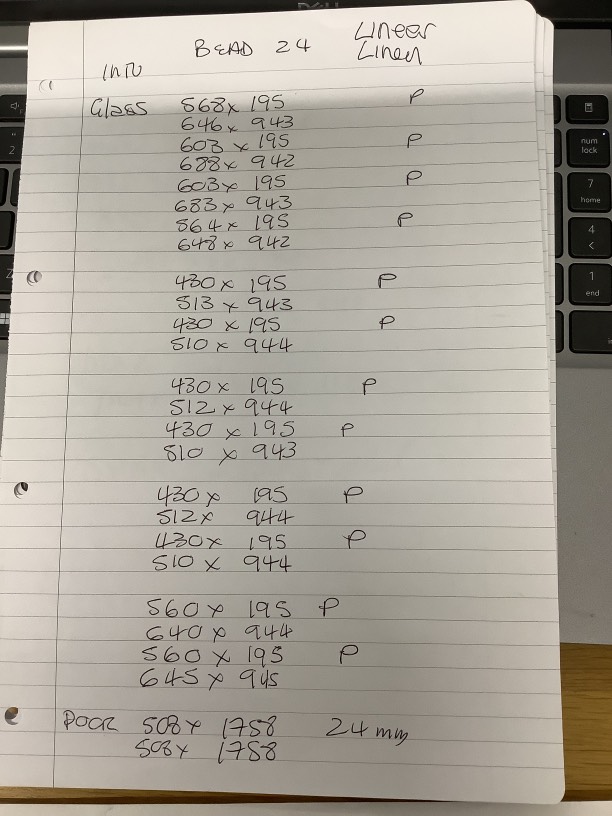 Linear
BEAD 24 Linen
INTO
Glass 568 x 195 P
646 x 943
603 x 195 P
688 x 942
603 x 195 P
683 x 943
564 x 195 P
648 x 942
430 x 195 P
513 x 943
430 x 195 P
510 x 944
430 x 195 P
512 x 944
430 x 195 P
510 x 943
430 x 195 P
512 x 944
430 x 195 P
510 x 944
560 x 195 P
640 x 944
560 x 195 P
645 x 945
DOOR 508 x 1758 24 mm
508 x 1758
num
lock
7
home
4
<
1
end
2